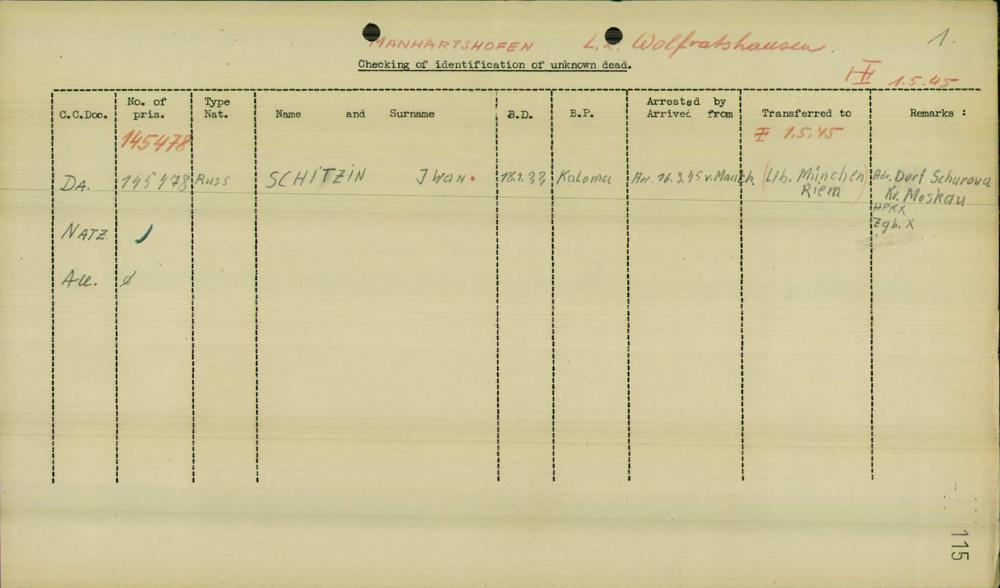 MANHARTSHOFEN L.K. Wolfratshausen. 1.
Checking of identification of unknown dead.
1.5.45
C.C.Doc. No. of pris. Type Nat. Name and Surname B.D. B.P. Arrested by Arrived from Transferred to Remarks :
145478 1.5.45
DA. 145478 Russ SCHITZIN Iwan. Kaloma Arr. 16.3.45 v. (Lib. München Riem) Adr. Dorf Schurowa
Kr. Moskau
HPKX
Zgb. X
NATZ
All. ø
115